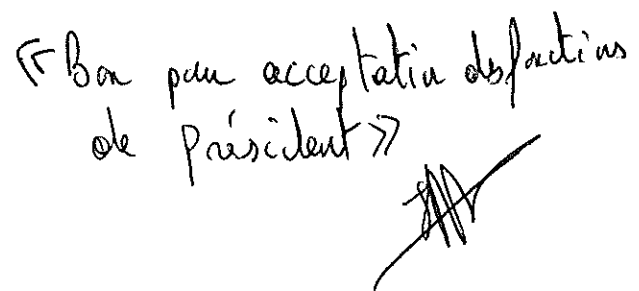 « Bon pour acceptation des fonctions
de Président »